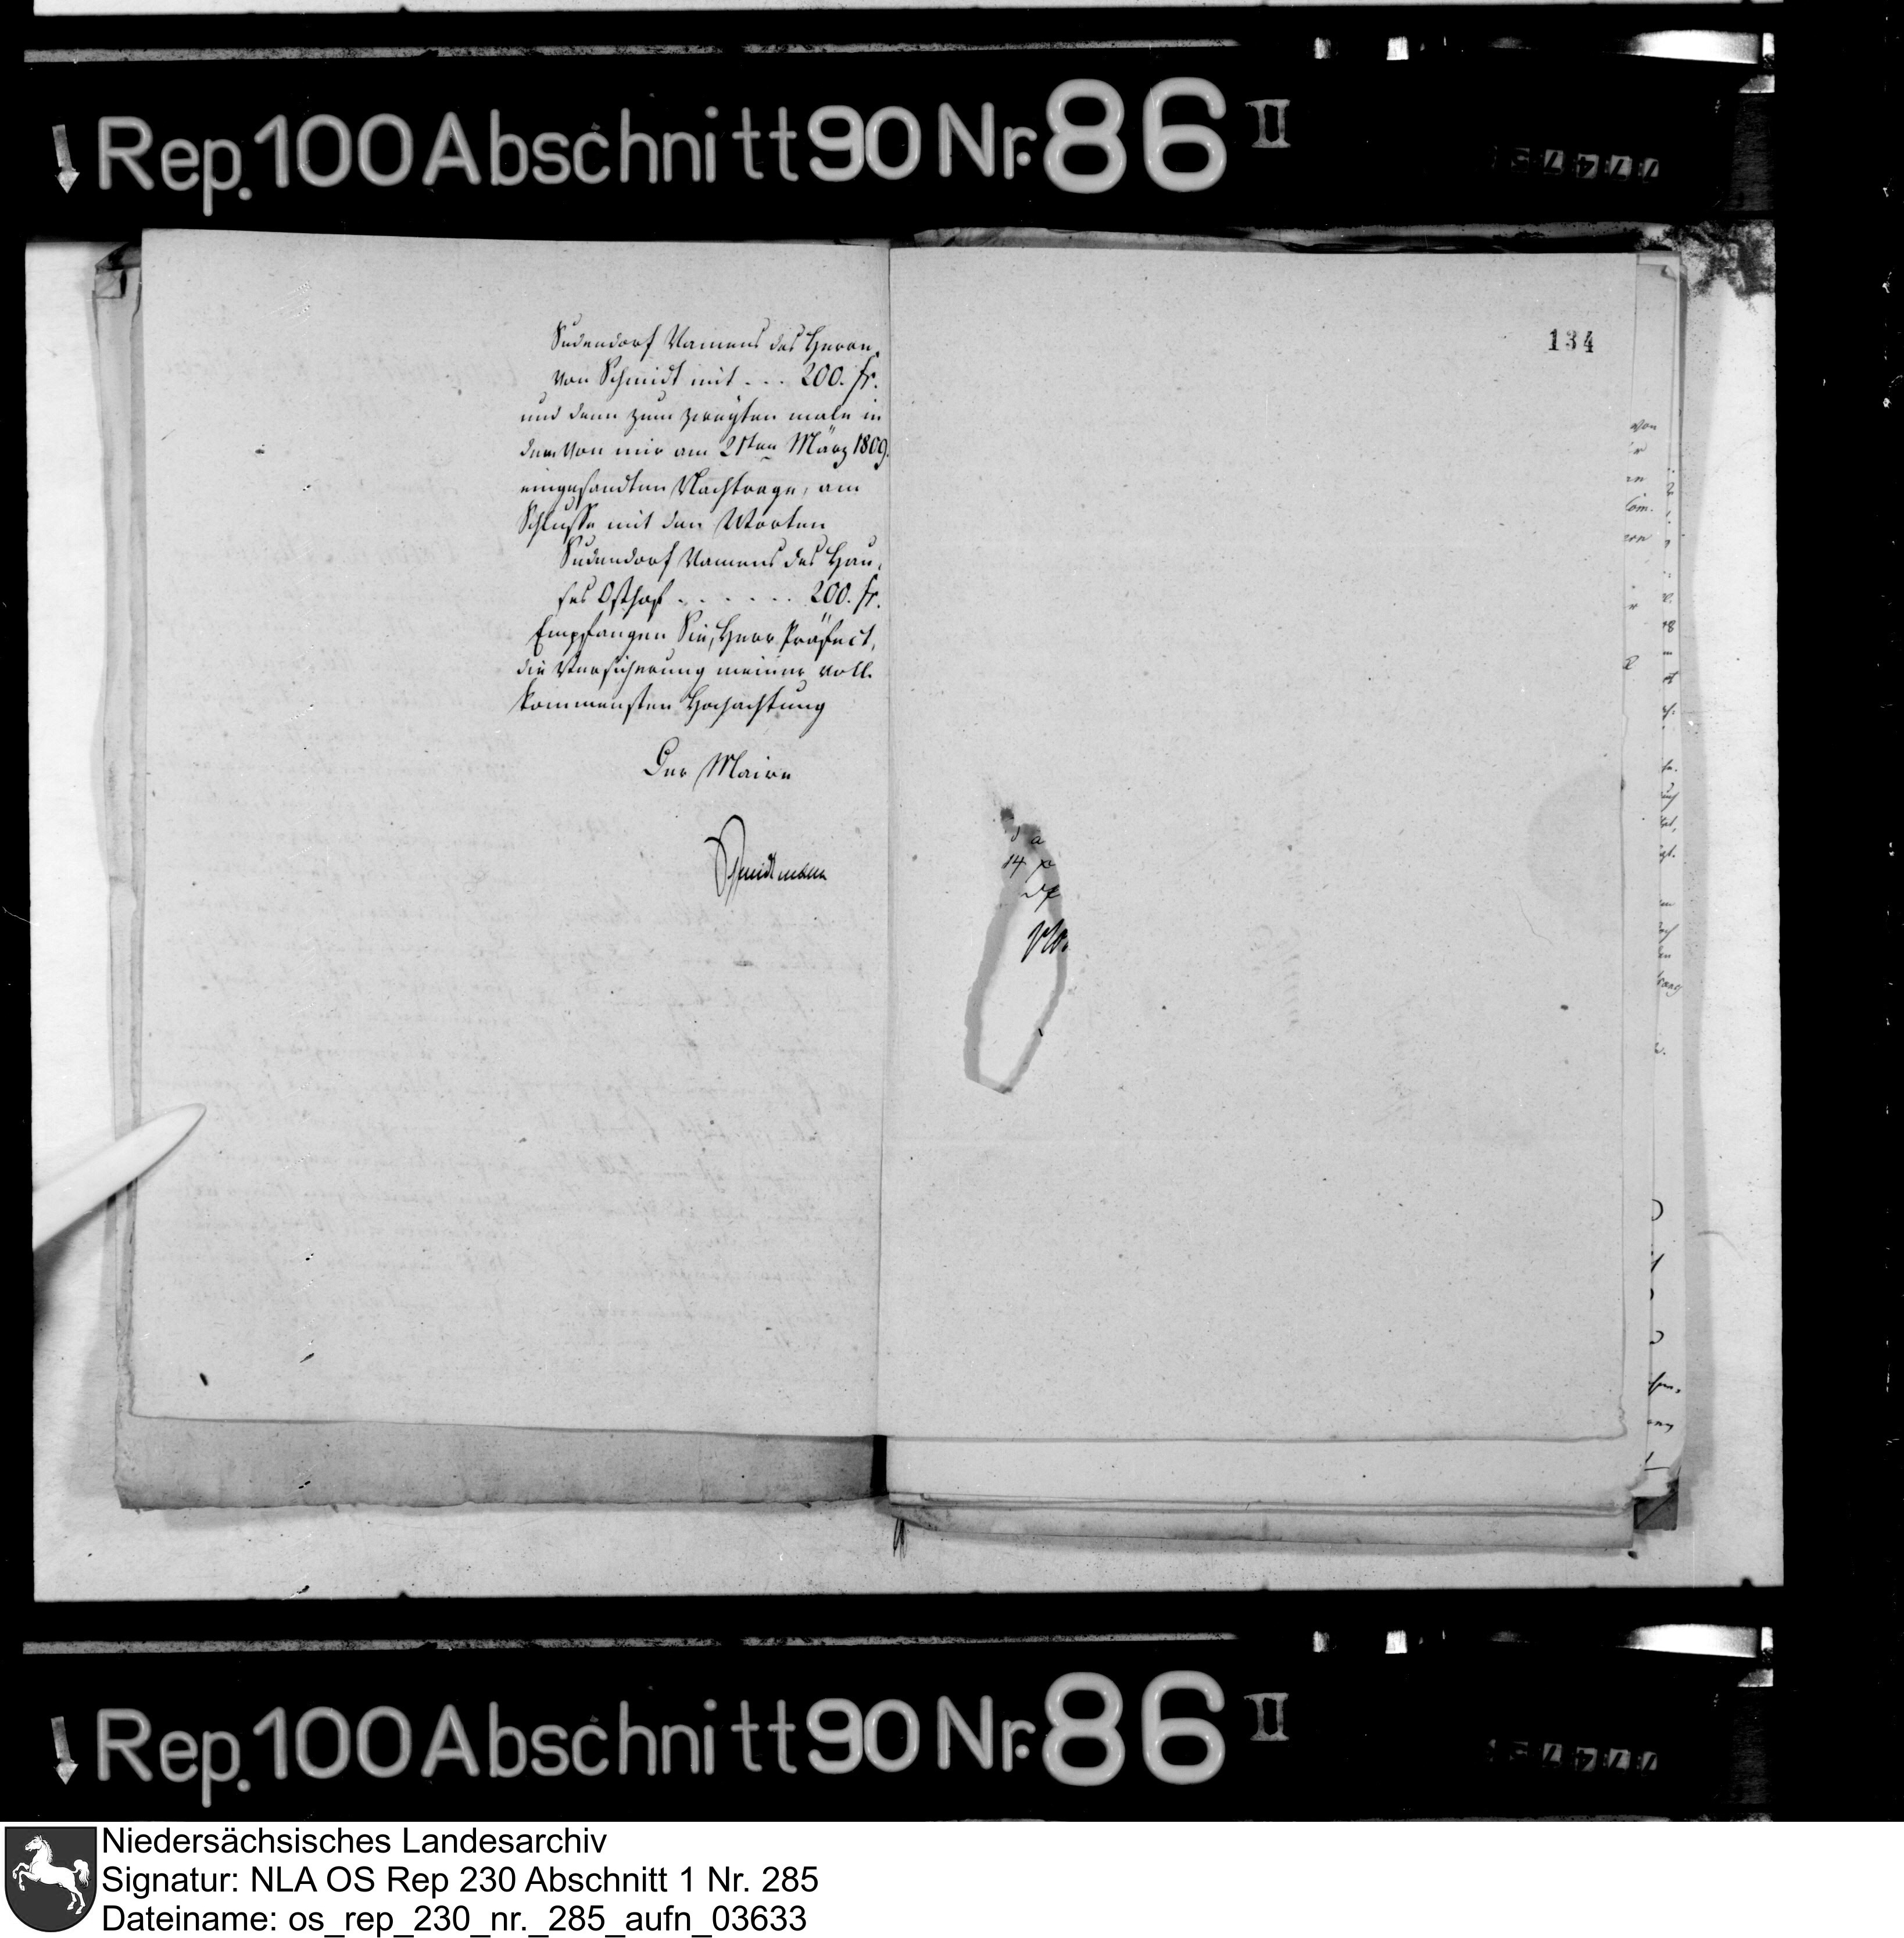 Rep. 100 Abschnitt 90 Nr. 86 II
Sudendorf Namens des Herrn
von Schmidt mit . . . 200. fr.
und dann zum zweyten male in
dem von mir am 21ten März 1809.
eingesandten Nachtrage, am
Schlusse mit den Worten
Sudendorf Namens des Hau,
ses Osthof . . . . . . 200. fr.
Empfangen Sie, Herr Präfect,
die Versicherung meiner voll-
kommensten Hochachtung
Der Maire
134
Rep. 100 Abschnitt 90 Nr. 86 II
Niedersächsisches Landesarchiv
Signatur: NLA OS Rep 230 Abschnitt 1 Nr. 285
Dateiname: os_rep_230_nr._285_aufn_03633